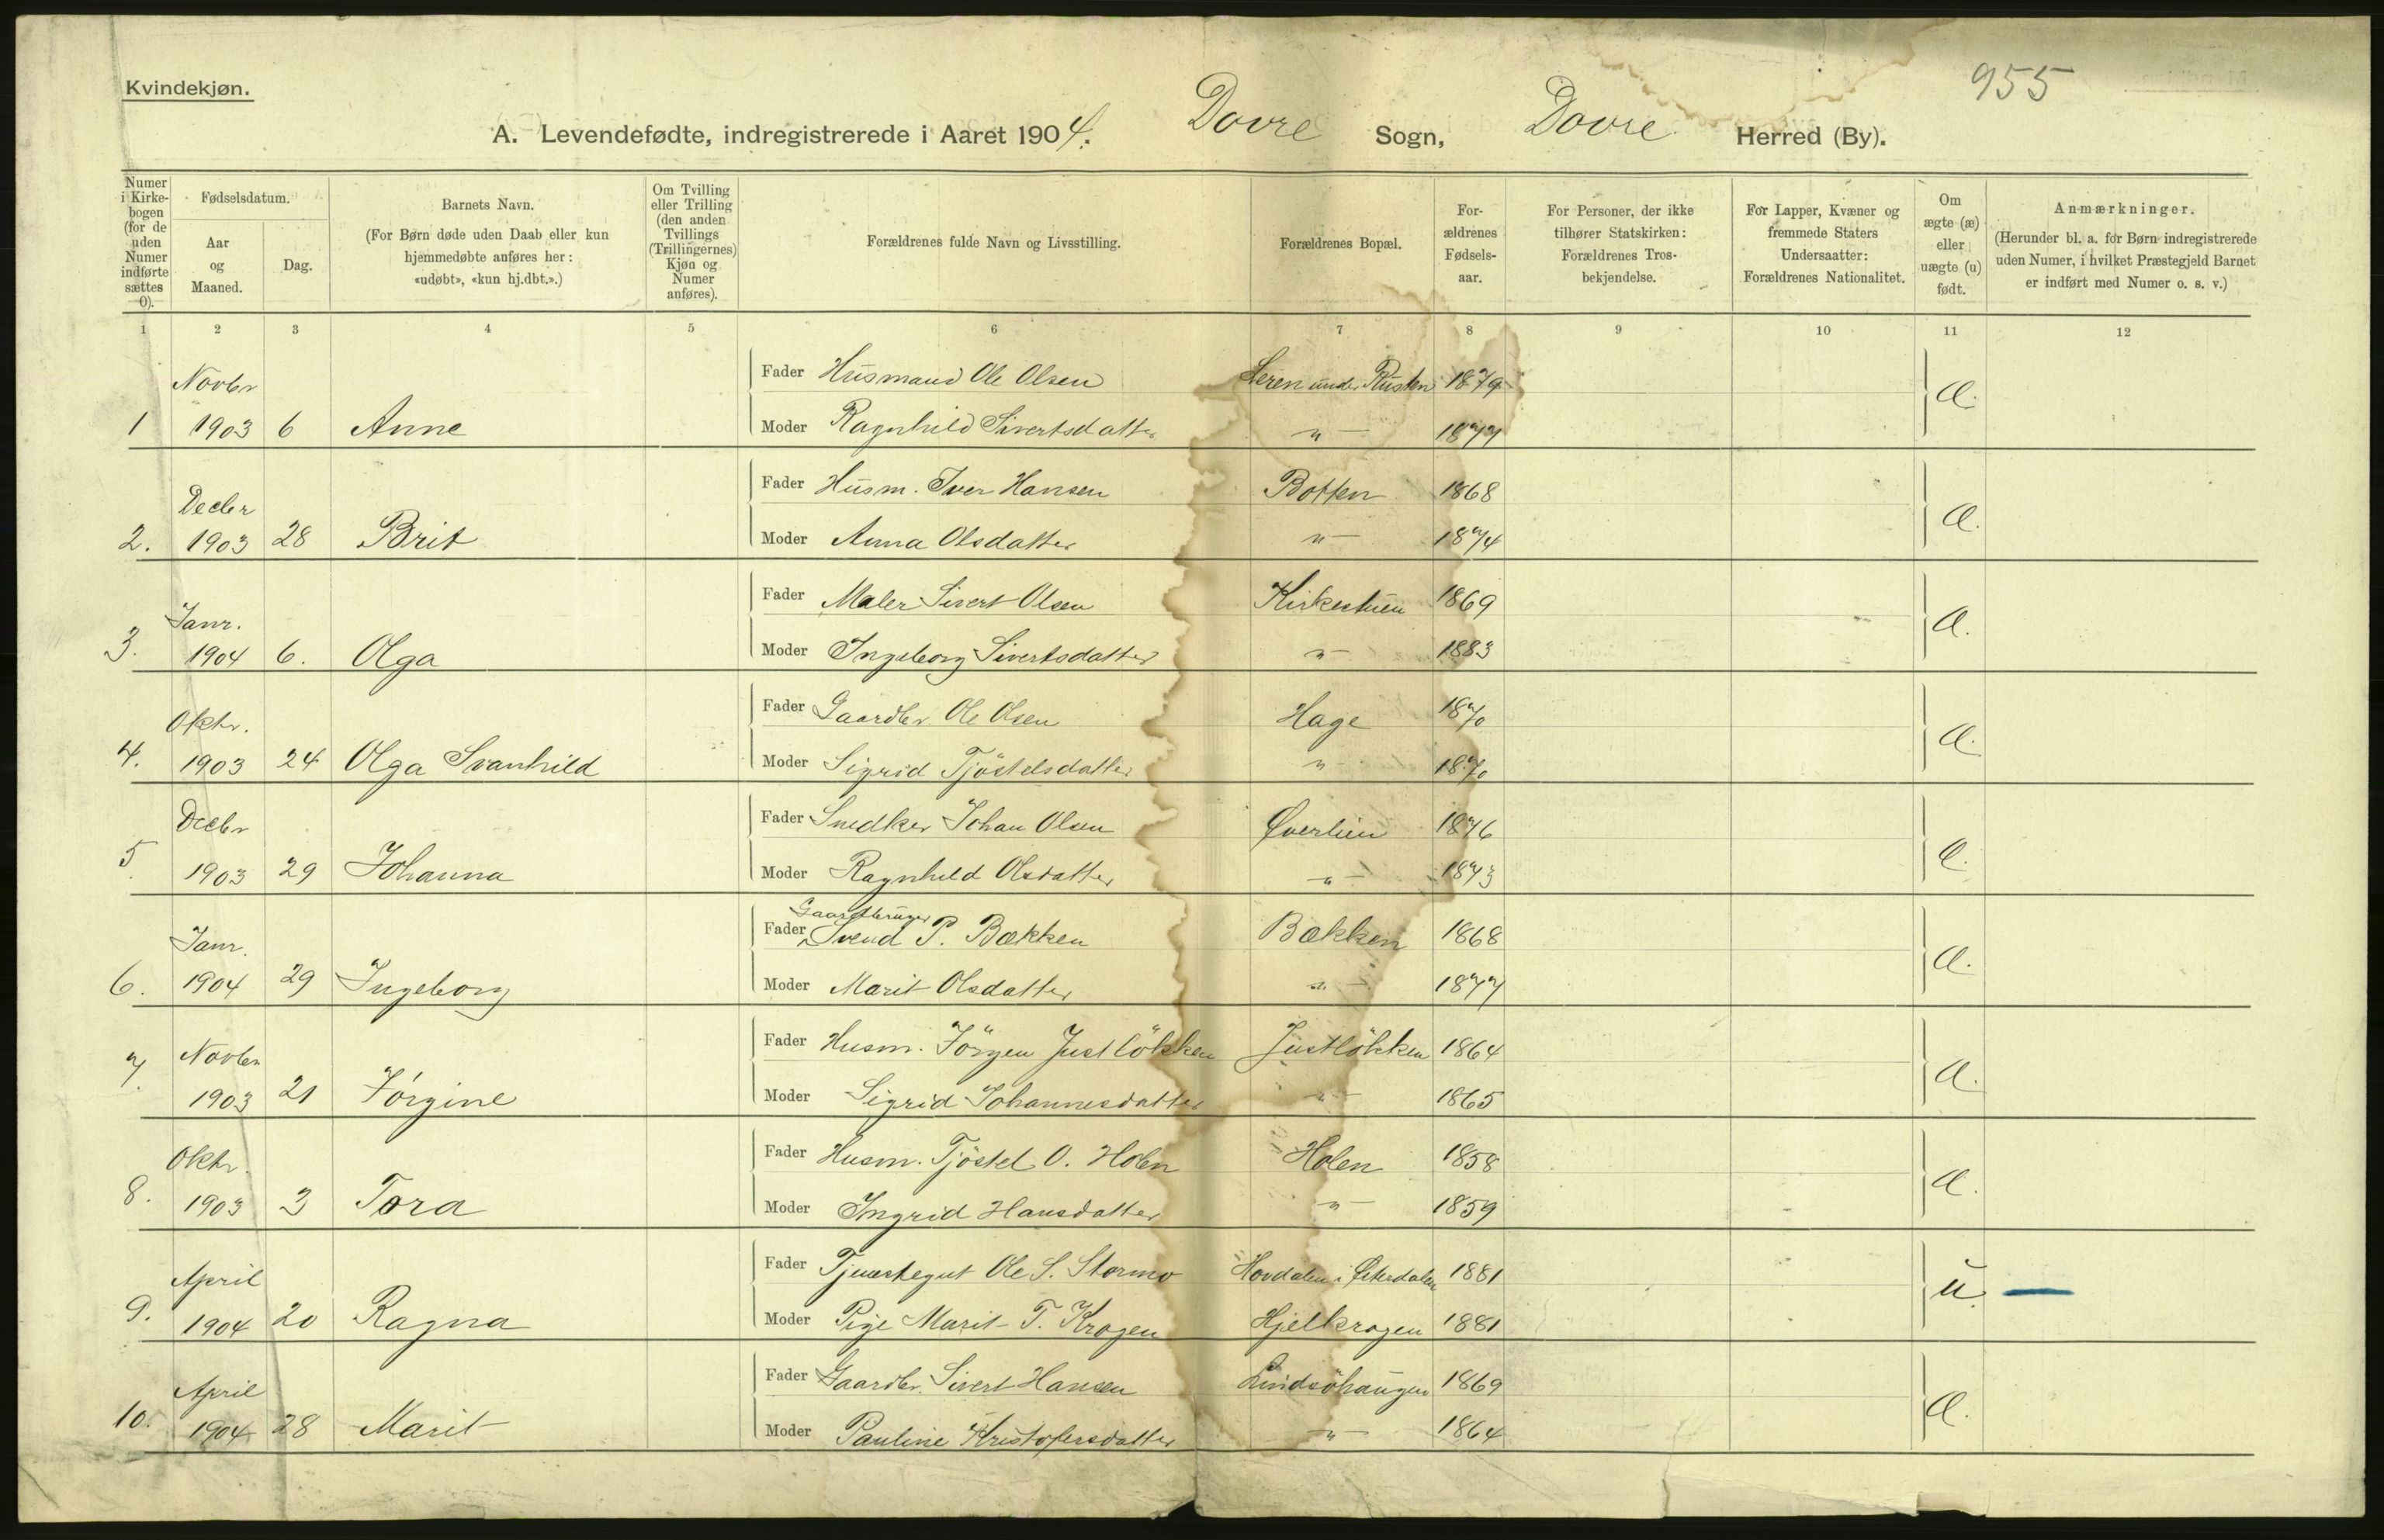 Kvindekjøn.
955
A. Levendefødte, indregistrerede i Aaret 1904. Dovre Sogn, Dovre Herred (By).
Numer i Kirkebogen (for de uden Numer indførte sættes 0).
Fødselsdatum.
Aar og Maaned.
Dag.
Barnets Navn.
(For Børn døde uden Daab eller kun hjemmedøbte anføres her: «udøbt», «kun hj.dbt.».)
Om Tvilling eller Trilling (den anden Tvillings (Trillingernes) Kjøn og Numer anføres).
Forældrenes fulde Navn og Livsstilling.
Forældrenes Bopæl.
Forældrenes Fødselsaar.
For Personer, der ikke tilhører Statskirken: Forældrenes Trosbekjendelse.
For Lapper, Kvæner og fremmede Staters Undersaatter: Forældrenes Nationalitet.
Om ægte (æ) eller uægte (u) født.
Anmærkninger.
(Herunder bl. a. for Børn indregistrerede uden Numer, i hvilket Præstegjeld Barnet er indført med Numer o. s. v.)
1 2 3 4 5 6 7 8 9 10 11 12
Novbr Fader Husmand Ole Olsen under Rusten 1879 Æ.
1 1903 6 Anne Moder Ragnhild Sivertsdatter " 1877
Decbr Fader Husm. Iver Hansen Botten 1868 Æ.
2. 1903 28 Brit Moder Anna Olsdatter " 1874
Janr. Fader Maler Sivert Olsen Kirkestuen 1869 Æ.
3. 1904 6. Olga Moder Ingeborg Sivertsdatter " 1883
Oktr. Fader Gaardbr Ole Olsen Hage 1870 Æ.
4. 1903 24 Olga Svanhild Moder Sigrid Tjöstelsdatter " 1870
Decbr Fader Snedker Johan Olsen Øverlien 1876 Æ.
5. 1903 29 Johanna Moder Ragnhild Olsdatter " 1873
Janr. Fader Gaardbruger Svend P. Bækken Bækken 1868 Æ.
6. 1904 29 Ingeborg Moder Marit Olsdatter " 1877
Novbr Fader Husm. Jörgen Justlökken Justlökken 1864 Æ.
7. 1903 21 Jörgine Moder Sigrid Johannesdatter " 1865
Oktr. Fader Husm. Tjöstel O. Holen Holen 1858 Æ.
8. 1903 3 Tora Moder Ingrid Hansdatter " 1859
April Fader Tjenestegut Ole S. Stormo i Østerdalen 1881 u. —
9. 1904 20 Ragna Moder Pige Marit T. Krogen Hjelkrogen 1881
April Fader Gaardbr. Sivert Hansen Lindsöhaugen 1869 Æ.
10. 1904 28 Marit Moder Pauline Kristofersdatter " 1864